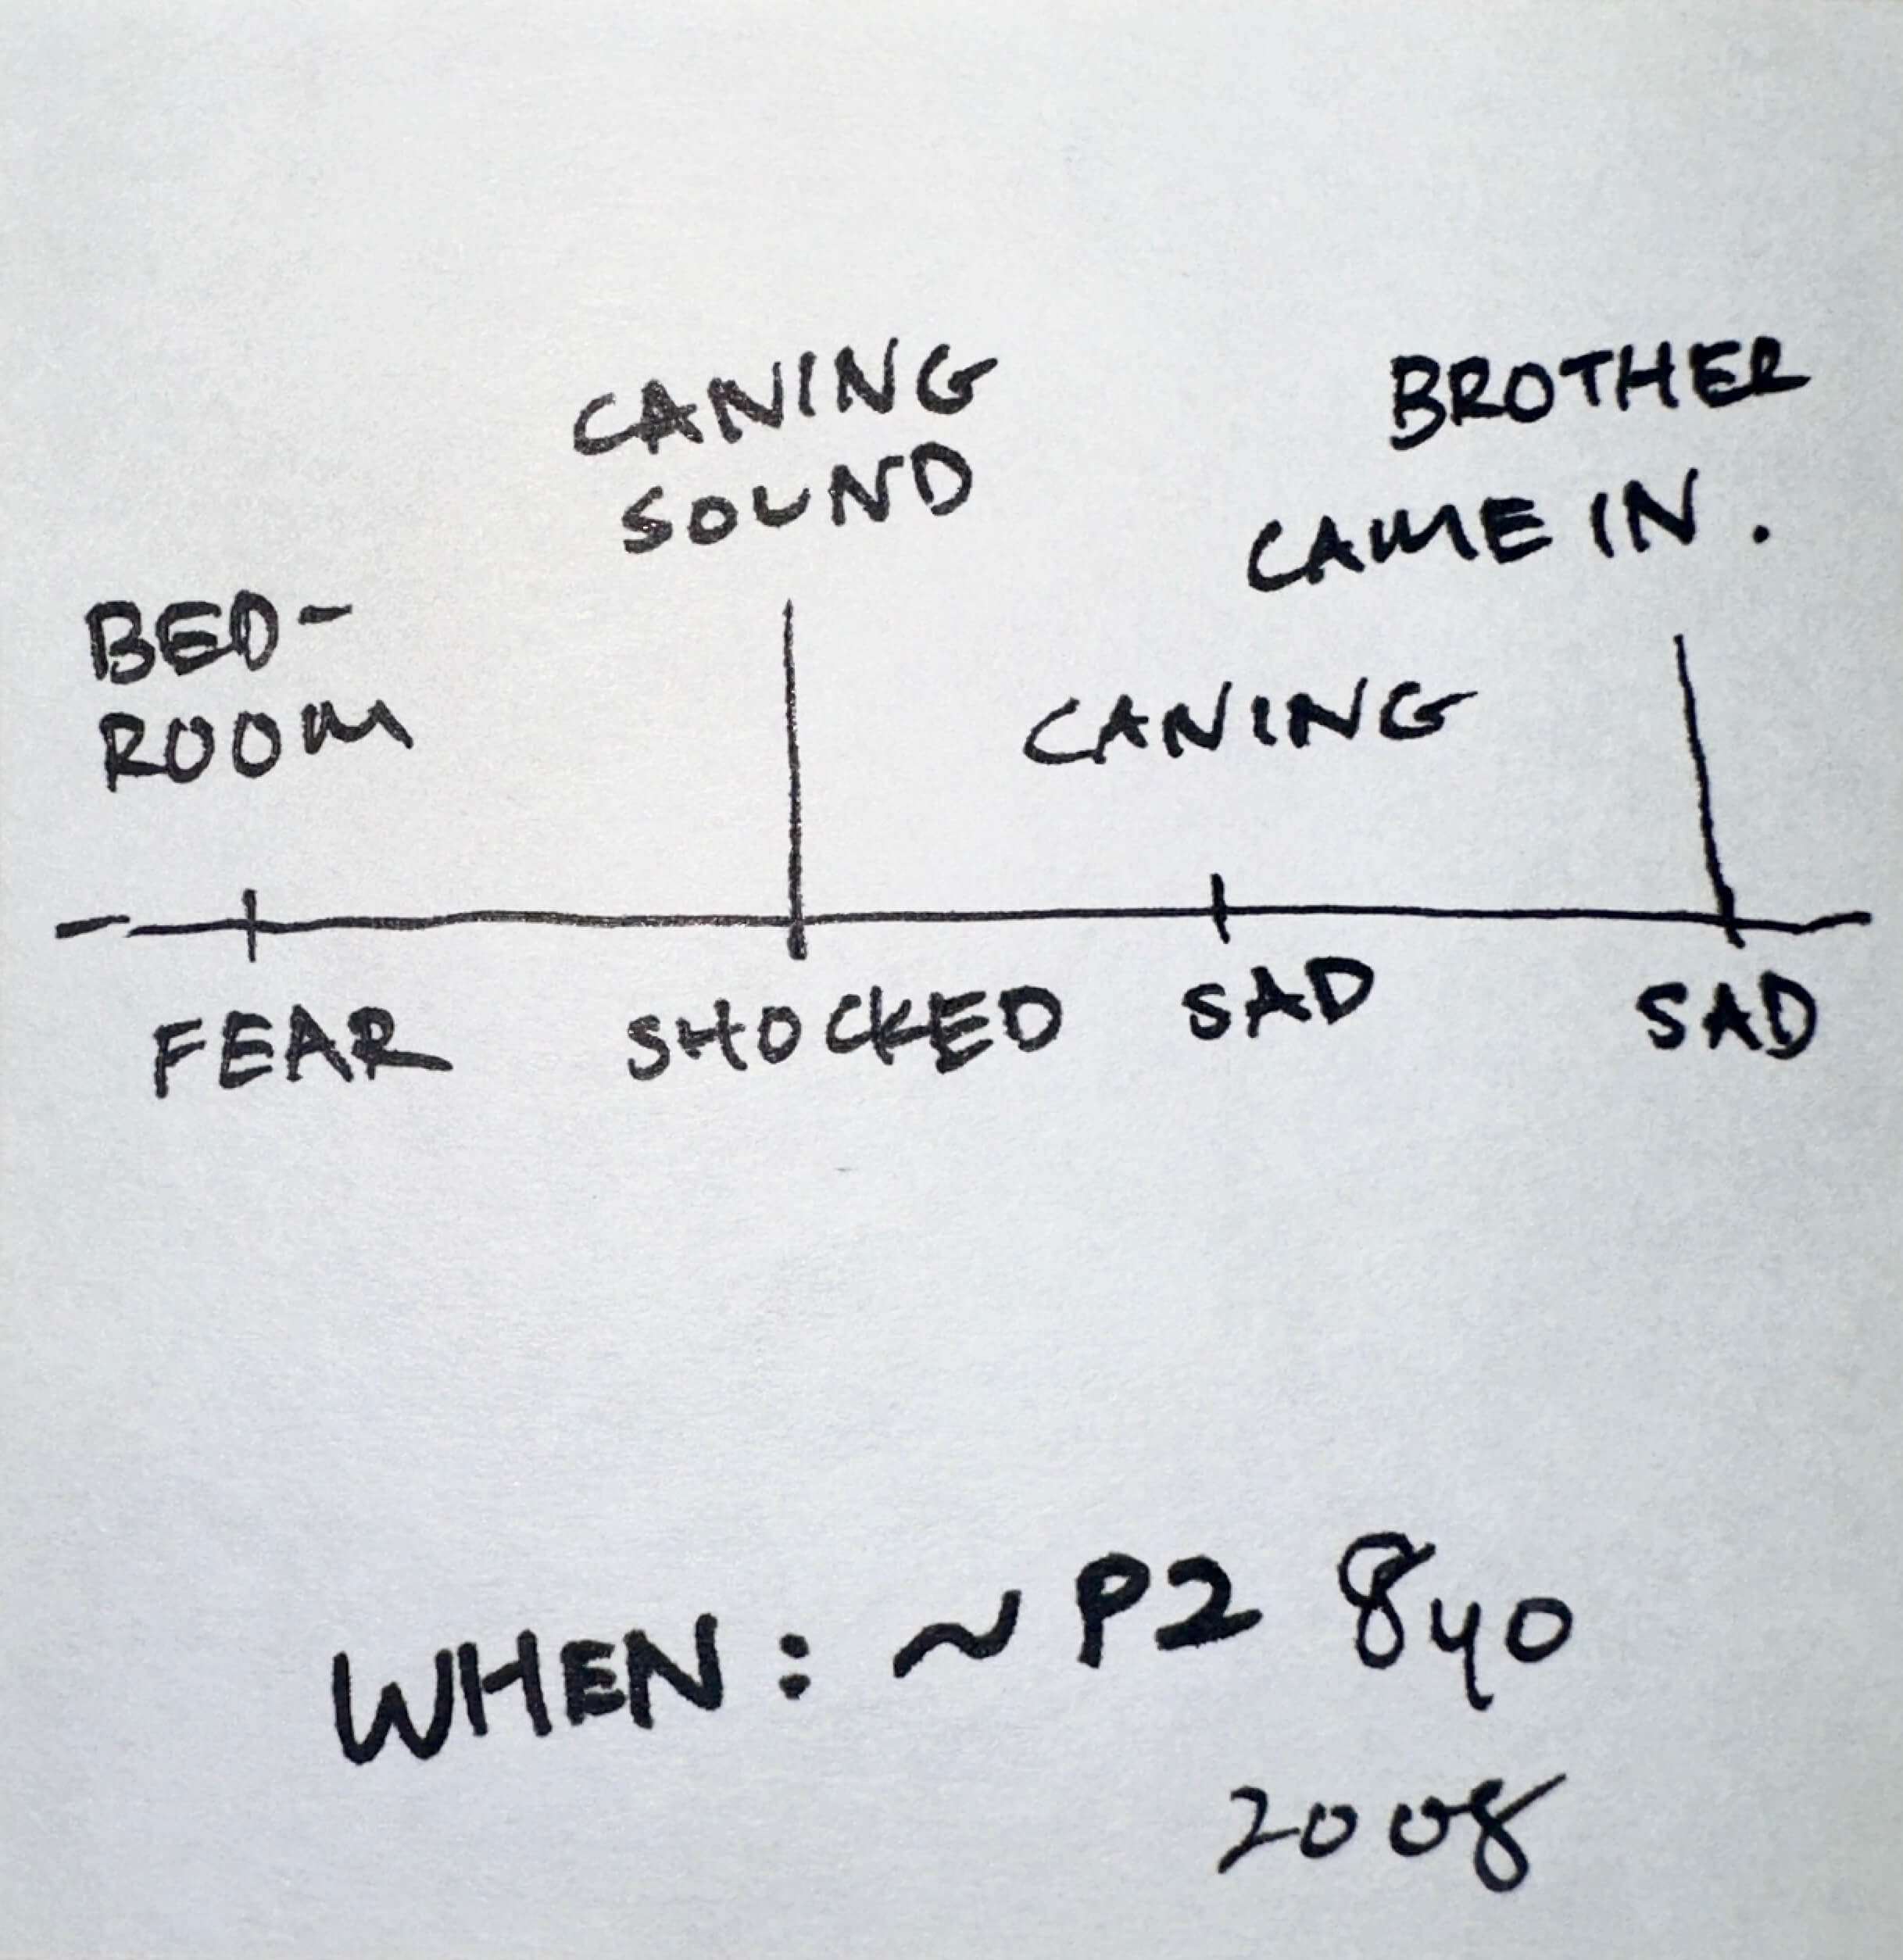 CANING
SOUND
BROTHER
CAME IN.
BED-
ROOM
CANING
FEAR
SHOCKED
SAD
SAD
WHEN: ~P2 8yo
2008